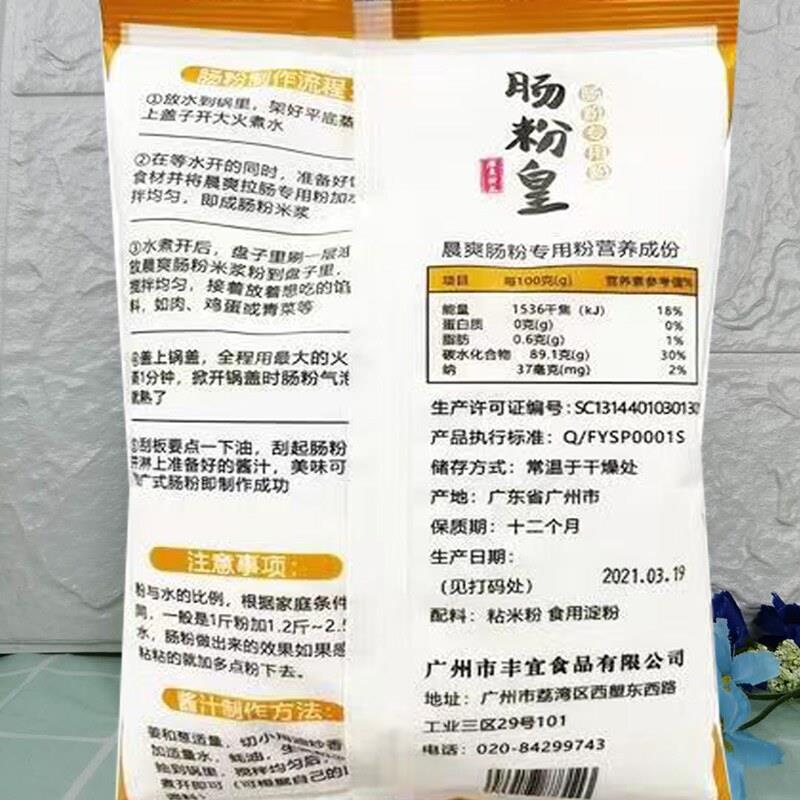 肠粉制作流程
①放水到锅里，架好平底蒸
上盖子开大火煮水
②在等水开的同时，准备好
食材并将晨爽拉肠专用粉加水
拌均匀，即成肠粉米浆
③水煮开后，盘子里刷一层油
放晨爽肠粉米浆粉到盘子里，
搅拌均匀，接着放着想吃的馅
料，如肉、鸡蛋或青菜等
④盖上锅盖，全程用最大的火
蒸1分钟，掀开锅盖时肠粉气泡
就熟了
⑤刮板要点一下油，刮起肠粉
淋上准备好的酱汁，美味可
广式肠粉即制作成功
注意事项：
粉与水的比例，根据家庭条件
同，一般是1斤粉加1.2斤~2.5
水，肠粉做出来的效果如果感
粘粘的就加多点粉下去。
酱汁制作方法：
姜和葱适量，切小用油炒香
加适量水，蚝油，生
锅里，搅拌均匀后，
煮开即可（可根据自己的
肠粉皇
肠粉专用粉
晨爽肠粉专用粉营养成份
项目 每100克(g) 营养素参考值%
能量 1536千焦（kJ） 18%
蛋白质 0克(g) 0%
脂肪 0.6克(g) 1%
碳水化合物 89.1克(g) 30%
钠 37毫克(mg) 2%
生产许可证编号：SC1314401030130
产品执行标准：Q/FYSP0001S
储存方式：常温于干燥处
产地：广东省广州市
保质期：十二个月
生产日期：
（见打码处） 2021.03.19
配料：粘米粉 食用淀粉
广州市丰宜食品有限公司
地址：广州市荔湾区西塱东西路
工业三区29号101
电话：020-84299743